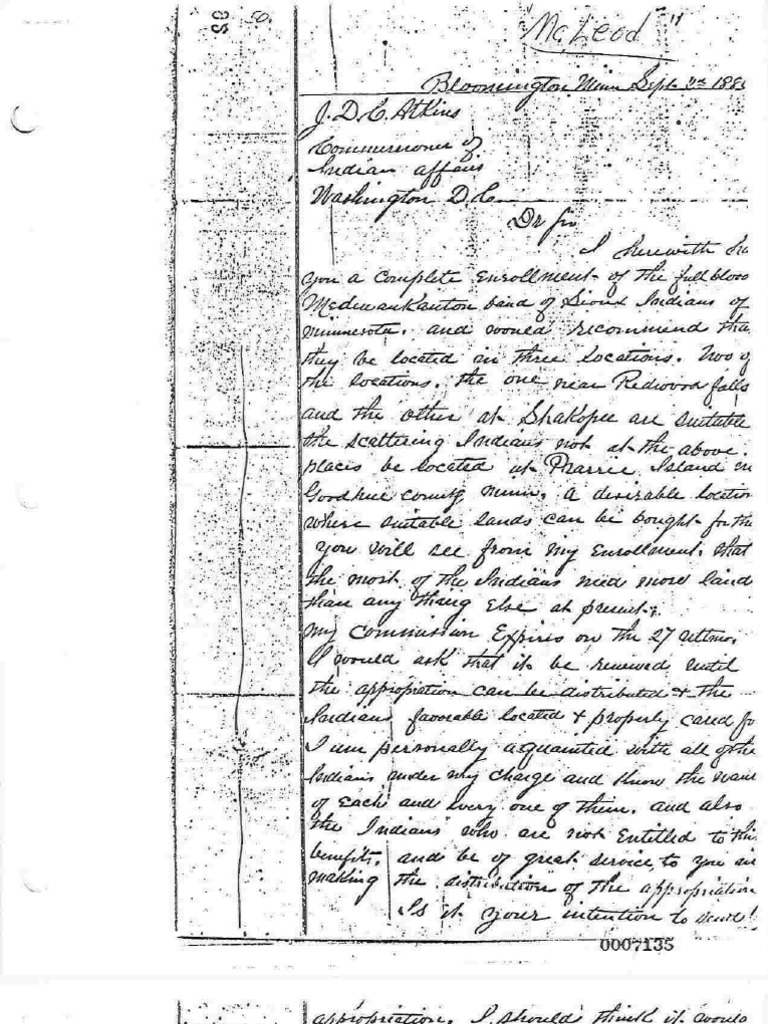 50.
McLeod "
Bloomington Minn Sept 2nd 188
J. D. C. Atkins
Commissioner of
Indian affairs
Washington D.C.
Dr Sir
I herewith
you a complete Enrollment of the full blood
Medewaukanton band of Sioux Indians of
Minnesota. and would recommend tha
they be located in three locations. Two of
the locations. the one near Redwood falls
and the other at Shakopee are suitable
the scattering Indians not at the above.
places be located at Prarrie Island in
Goodhue county Minn. a desirable location
where suitable lands can be bought for th
you will see from my Enrollment. that
the most of the Indians need more land
than any thing Else at present.
My Commission Expires on the 27 ultmo.
I would ask that it be renewed until
the appropriation can be distributed & the
Indians favorable located & properly cared fo
I am personally acquainted with all of the
Indians under my charge and know the wan
of Each and Every one of them. and also
the Indians who are not Entitled to th
benefits. and be of great service to you in
making the distribution of the appropriation
Is it your intention to send
0007135
appropriation. I should think it would